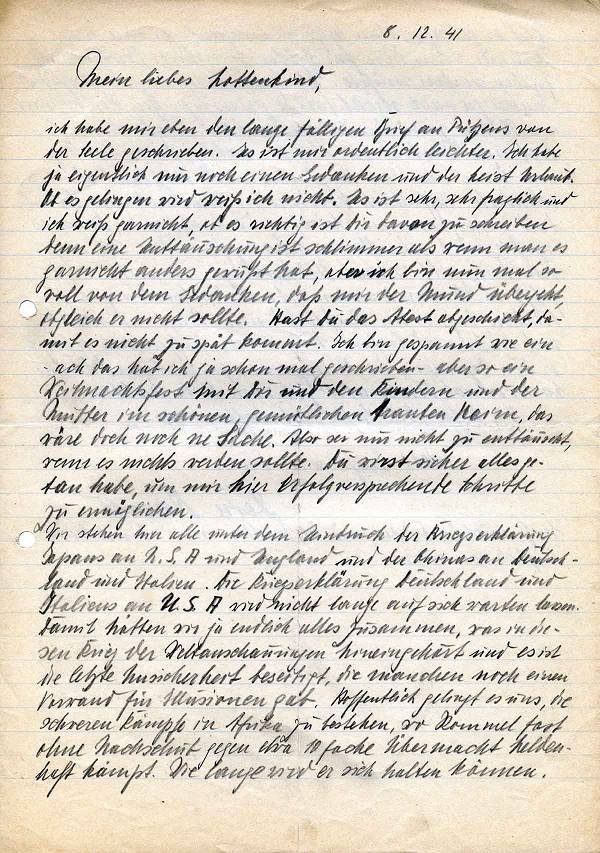 8. 12. 41
Mein liebes Lottenkind,
ich habe mir eben den lange fälligen Brief an Pützens von
der Seele geschrieben. Es ist mir ordentlich leichter. Ich habe
ja eigentlich nur noch einen Gedanken und der heist Urlaub.
Ob es gelingen wird weiß ich nicht. Es ist sehr, sehr fraglich und
ich weiß garnicht, ob es richtig ist Dir davon zu schreiben
denn eine Enttäuschung ist schlimmer als wenn man es
garnicht anders gewußt hat, aber ich bin nun mal so
voll von dem Gedanken, daß mir der Mund übergeht,
obgleich er nicht sollte. Hast Du das Atest abgeschickt, da-
mit es nicht zu spät kommt. Ich bin gespannt wie ein
- ach das hab ich ja schon mal geschrieben - aber so ein
Weihnachtsfest mit Dir und den Kindern und der
Mutter im schönen, gemütlichen trauten Heim, das
wäre doch noch ne Sache. Also sei nur nicht zu enttäuscht,
wenn es nichts werden sollte. Du wirst sicher alles ge-
tan habe, um mir hier Erfolgversprechende Schritte
zu ermöglichen.
Wir stehen hier alle unter dem Eindruck der Kriegserklärung
Japans an U.S.A und England und der Chinas an Deutsch-
land und Italien. Die Kriegserklärung Deutschland und
Italiens an U.S.A wird nicht lange auf sich warten lassen.
Damit hätten wir ja endlich alles zusammen, was in die-
sen Krieg der Weltanschauungen hineingehört und es ist
die letzte Unsicherheit beseitigt, die manchen noch einen
Vorwand für Illusionen gab. Hoffentlich gelingt es uns, die
schweren Kämpfe in Afrika zu bestehen, wo Rommel fast
ohne Nachschub gegen etwa 10 fache Übermacht helden-
haft kämpft. Wie lange wird er sich halten können.